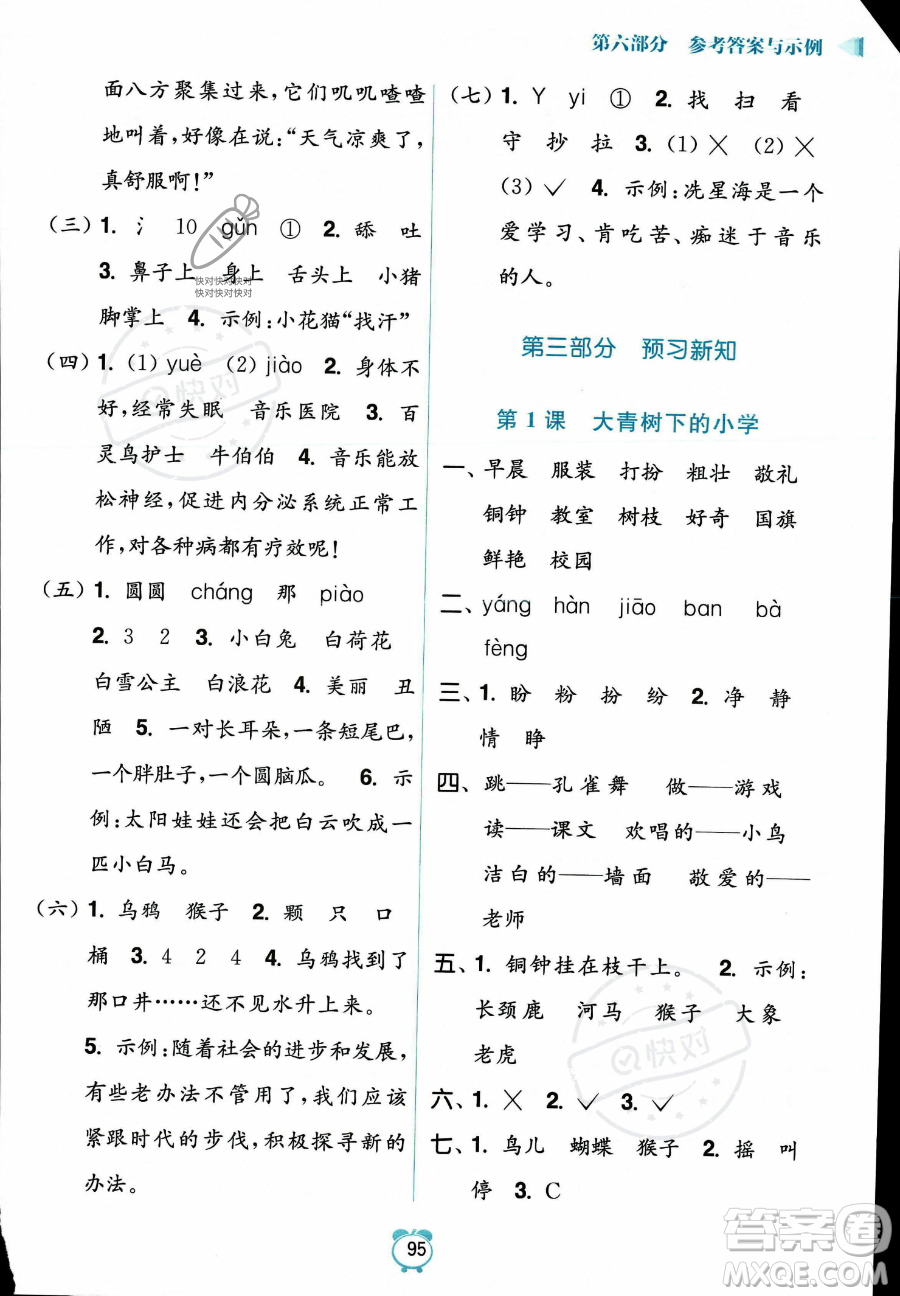 第六部分 参考答案与示例
面八方聚集过来，它们叽叽喳喳
地叫着，好像在说：“天气凉爽了，
真舒服啊！”
（三）1. 氵 10 gǔn ① 2. 舔 吐
3. 鼻子上 身上 舌头上 小猪
脚掌上 4. 示例：小花猫“找汗”
（四）1. (1) yuè (2) jiào 2. 身体不
好，经常失眠 音乐医院 3. 百
灵鸟护士 牛伯伯 4. 音乐能放
松神经，促进内分泌系统正常工
作，对各种病都有疗效呢！
（五）1. 圆圆 cháng 那 piào
2. 3 2 3. 小白兔 白荷花
白雪公主 白浪花 4. 美丽 丑
陋 5. 一对长耳朵，一条短尾巴，
一个胖肚子，一个圆脑瓜。 6. 示
例：太阳娃娃还会把白云吹成一
匹小白马。
（六）1. 乌鸦 猴子 2. 颗 只 口
桶 3. 4 2 4 4. 乌鸦找到了
那口井……还不见水升上来。
5. 示例：随着社会的进步和发展，
有些老办法不管用了，我们应该
紧跟时代的步伐，积极探寻新的
办法。
（七）1. Y yi ① 2. 找 扫 看
守 抄 拉 3. (1) ✕ (2) ✕
(3) ✓ 4. 示例：冼星海是一个
爱学习、肯吃苦、痴迷于音乐
的人。
第三部分 预习新知
第 1 课 大青树下的小学
一、早晨 服装 打扮 粗壮 敬礼
铜钟 教室 树枝 好奇 国旗
鲜艳 校园
二、yáng hàn jiāo ban bà
fèng
三、1. 盼 粉 扮 纷 2. 净 静
情 睁
四、跳——孔雀舞 做——游戏
读——课文 欢唱的——小鸟
洁白的——墙面 敬爱的——
老师
五、1. 铜钟挂在枝干上。 2. 示例：
长颈鹿 河马 猴子 大象
老虎
六、1. ✕ 2. ✓ 3. ✓
七、1. 鸟儿 蝴蝶 猴子 2. 摇 叫
停 3. C
95
快对快对快对快对
快对快对快对快对
快对
快对
答案圈
MXQE.COM